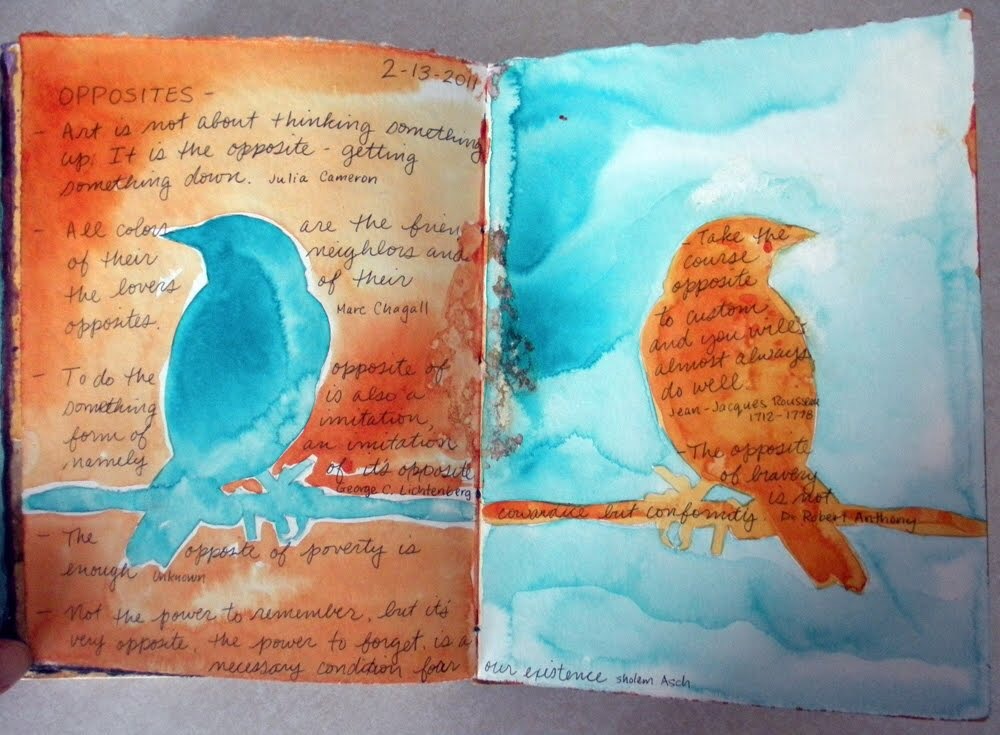 2-13-2011
OPPOSITES -
- Art is not about thinking something
up. It is the opposite - getting
something down. Julia Cameron
- All colors are the frien
of their neighbors and
the lovers of their
opposites. Marc Chagall
- To do the opposite of
something is also a
form of imitation,
namely an imitation
of its opposite
George C. Lichtenberg
- The opposite of poverty is
enough Unknown
- Not the power to remember, but it's
very opposite, the power to forget, is a
necessary condition four our existence Sholem Asch
- Take the
course
opposite
to custom
and you will
almost always
do well.
Jean-Jacques Rousseau
1712-1778
- The opposite
of bravery
is not
cowardice but conformity. Dr Robert Anthony